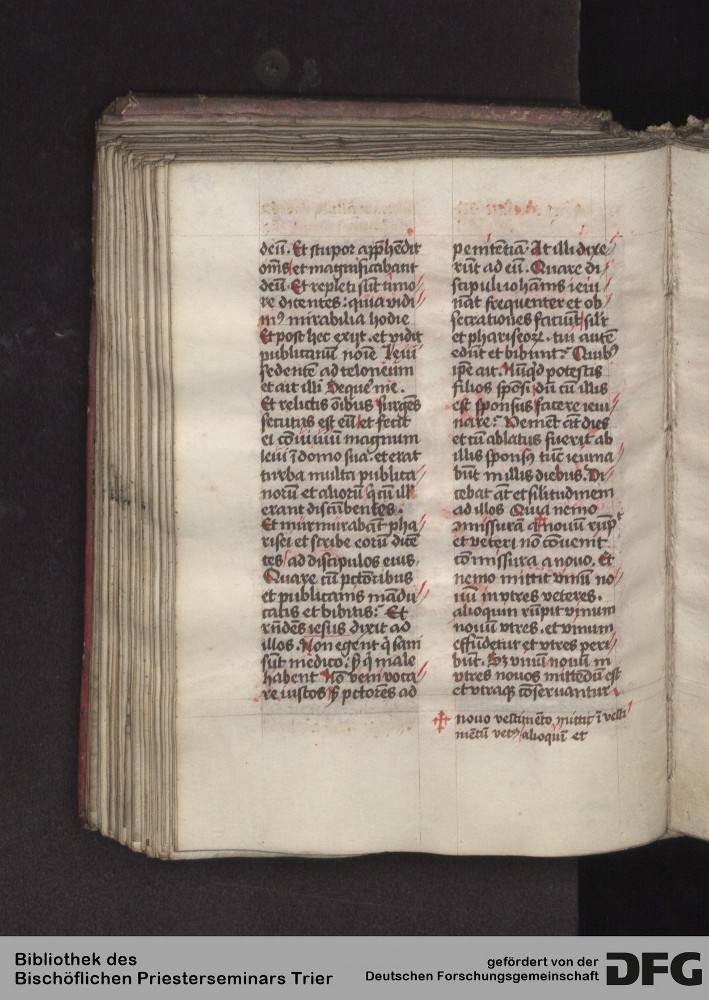 deū. Et stupor app̄hēdit
om̄s et magnificabant
deū. Et repleti sūt timo
re dicentes: quia vidi
mꝰ mirabilia hodie
Et post hec exijt. et vidit
publicanū noīe leui
sedentē ad teloneum
et ait illi Seque me.
Et relictis oībus surgēs
secutus est eū et fecit
ei cōuiuiū magnum
leui ī domo sua. et erat
turba multa publica
norū et aliorū q̄ cū ill̄
erant discūbentes.
Et murmurabāt pha
risei et scribe eorū dicē
tes ad discipulos eius.
Quare cū pctōribus
et publicanis mādu
catis et bibitis? Et
rn̄dēs iesus dixit ad
illos. Non egent q̄ sani
sūt medico. ſꝫ q̄ male
habent Nō veni voca
re iustos ſꝫ pctores ad
penitētiā. At illi dixe
rūt ad eū. Quare di
scipuli iohānis ieiu
nāt frequenter et ob
secrationes faciūt sil'r
et phariseoꝝ. tui autē
edūt et bibunt? Quibꝰ
ip̄e ait. Nūqd potestis
filios spōsi dū cū illis
est sponsus facere ieiu
nare? Veniēt āt dies
et cū ablatus fuerit ab
illis sponsꝰ tūc ieiuna
būt in illis diebus. Di
cebat āt et sīlitudinem
ad illos Quia nemo
ꝯmissurā a nouū rūp̄
et veteri nō cōuenit
cōmissura a nouo. Et
nemo mittit vinū no
uū in vtres veteres.
alioquin rūpit vinum
nouū vtres. et vinum
effūdetur et vtres peri
būt. Sꝫ vinū nouū in
vtres nouos mittēdū est
et vtraqꝫ cōseruantur.
✠ nouo vestimēto mittit ī vesti
mētū vetꝰ alioquī et
Bibliothek des
Bischöflichen Priesterseminars Trier
gefördert von der
Deutschen Forschungsgemeinschaft
DFG